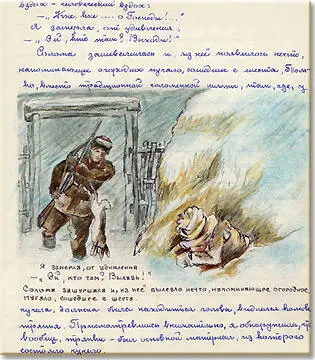 вздох - человеческий вздох:
О Господи!..."
Я замерла, от удивления.
-, Эй, кто там? Выходи!"
Солома зашевелилась и, из неё появилось нечто,
напоминающее огородное пугало, сошедшее с шеста. Толь-
ко, вместо традиционной соломенной шляпы, там, где, у
Я замерла, от удивления
-, Эй, кто там? Вылезь!"
Солома зашуршала и, из неё вылезло нечто, напоминающее огородное,
пугало, сошедшее с шеста.
пугала, должна была находиться голова, виднелся клубок
тряпья. Присмотревшись внимательно, я обнаружила, что
вообще, тряпьё - был основной материал, из которого
состояло пугало.